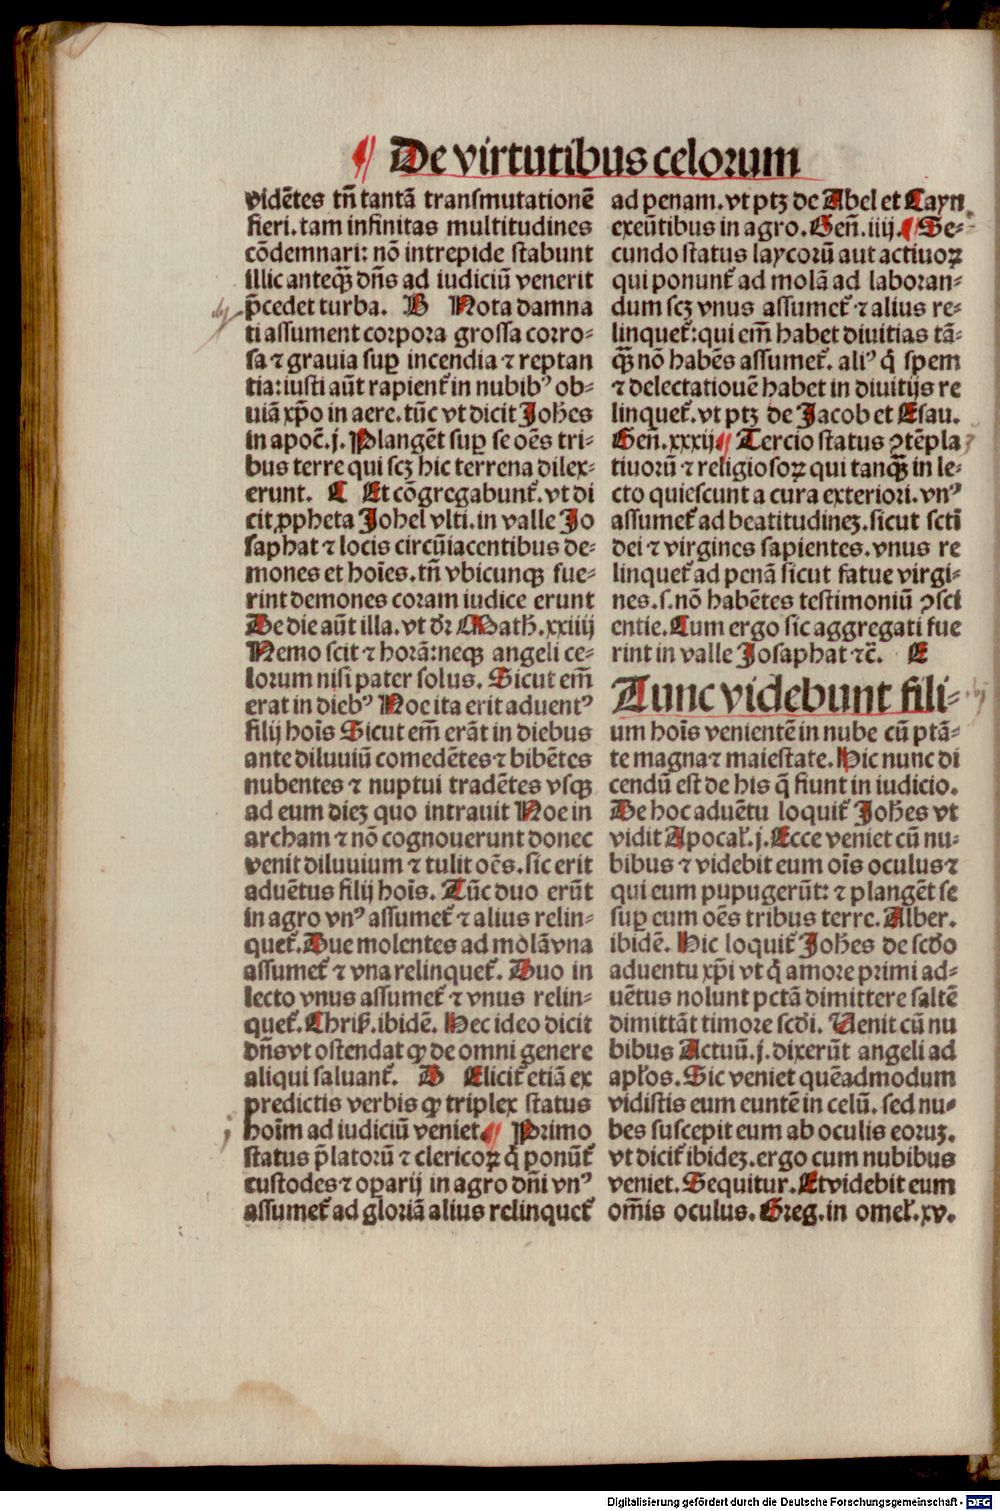 De virtutibus celorum
vidẽtes tñ tantã transmutationẽ
fieri. tam infinitas multitudines
cõdemnari: nõ intrepide stabunt
illic anteqꝫ dñs ad iudiciũ venerit
p̃cedet turba. B Nota damna
ti assument corpora grossa corro⸗
sa ⁊ grauia suꝑ incendia ⁊ reptan
tia: iusti aũt rapient᷑ in nubibꝰ ob⸗
uiã xp̃o in aere. tũc vt dicit Joħes
in apoc̃. j. Plangẽt suꝑ se oẽs tri⸗
bus terre qui scꝫ hic terrena dilex⸗
erunt. C Et cõgregabunt᷑. vt di
cit ꝓpheta Johel vlti. in valle Jo
saphat ⁊ locis circũiacentibus de⸗
mones et hoĩes. tñ vbicunqꝫ fue⸗
rint demones coram iudice erunt
De die aũt illa. vt dr̃ Math̃. xxiiij
Nemo scit ⁊ horã: neqꝫ angeli ce⸗
lorum nisi pater solus. Sicut em̃
erat in diebꝰ Noe ita erit aduentꝰ
filij hoĩs Sicut em̃ erãt in diebus
ante diluuiũ comedẽtes ⁊ bibẽtes
nubentes ⁊ nuptui tradẽtes vsqꝫ
ad eum dieꝫ quo intrauit Noe in
archam ⁊ nõ cognouerunt donec
venit diluuium ⁊ tulit oẽs. sic erit
aduẽtus filij hoĩs. Tũc duo erũt
in agro vnꝰ assumet᷑ ⁊ alius relin⸗
quet᷑. Due molentes ad molã vna
assumet᷑ ⁊ vna relinquet᷑. Duo in
lecto vnus assumet᷑ ⁊ vnus relin⸗
quet᷑. Chriſ. ibidẽ. Hec ideo dicit
dñs vt ostendat ꝙ de omni genere
aliqui saluant᷑. D Elicit᷑ etiã ex
predictis verbis ꝙ triplex status
hoĩm ad iudiciũ veniet. Primo
status p̃latorũ ⁊ clericoꝝ q̃ ponũt᷑
custodes ⁊ oꝑarij in agro dñi vnꝰ
assumet᷑ ad gloriã alius relinquet᷑
ad penam. vt ptꝫ de Abel et Cayn
exeũtibus in agro. Geñ. iiij. Se⸗
cundo status laycorũ aut actiuoꝝ
qui ponunt᷑ ad molã ad laboran⸗
dum scꝫ vnus assumet᷑ ⁊ alius re⸗
linquet᷑: qui em̃ habet diuitias tã⸗
qꝫ nõ habẽs assumet᷑. aliꝰ q̃ spem
⁊ delectationẽ habet in diuitijs re
linquet᷑. vt ptꝫ de Jacob et Esau.
Geñ. xxxij. Tercio status ꝯtẽpla
tiuorũ ⁊ religiosoꝝ qui tanqꝫ in le⸗
cto quiescunt a cura exteriori. vnꝰ
assumet᷑ ad beatitudineꝫ. sicut scti
dei ⁊ virgines sapientes. vnus re
linquet᷑ ad penã sicut fatue virgi⸗
nes. s. nõ habẽtes testimoniũ ꝯsci
entie. Cum ergo sic aggregati fue
rint in valle Josaphat ⁊c̃. E
Tunc videbunt fili⸗
um hoĩs venientẽ in nube cũ ptã⸗
te magna ⁊ maiestate. Hic nunc di
cendũ est de his q̃ fiunt in iudicio.
De hoc aduẽtu loquit᷑ Joħes vt
vidit Apocal̃. j. Ecce veniet cũ nu⸗
bibus ⁊ videbit eum oĩs oculus ⁊
qui eum pupugerũt: ⁊ plangẽt se
suꝑ eum oẽs tribus terre. Alber.
ibidẽ. Hic loquit᷑ Joħes de scd̃o
aduentu xp̃i vt q̃ amore primi ad⸗
uẽtus nolunt pctã dimittere saltẽ
dimittãt timore scd̃i. Venit cũ nu
bibus Actuũ. j. dixerũt angeli ad
apl̃os. Sic veniet quẽadmodum
vidistis eum euntẽ in celũ. sed nu⸗
bes suscepit eum ab oculis eoruꝫ.
vt dicit᷑ ibideꝫ. ergo cum nubibus
veniet. Sequitur. Et videbit eum
om̃is oculus. Greg. in omel̃. xv.
Digitalisierung gefördert durch die Deutsche Forschungsgemeinschaft - DFG